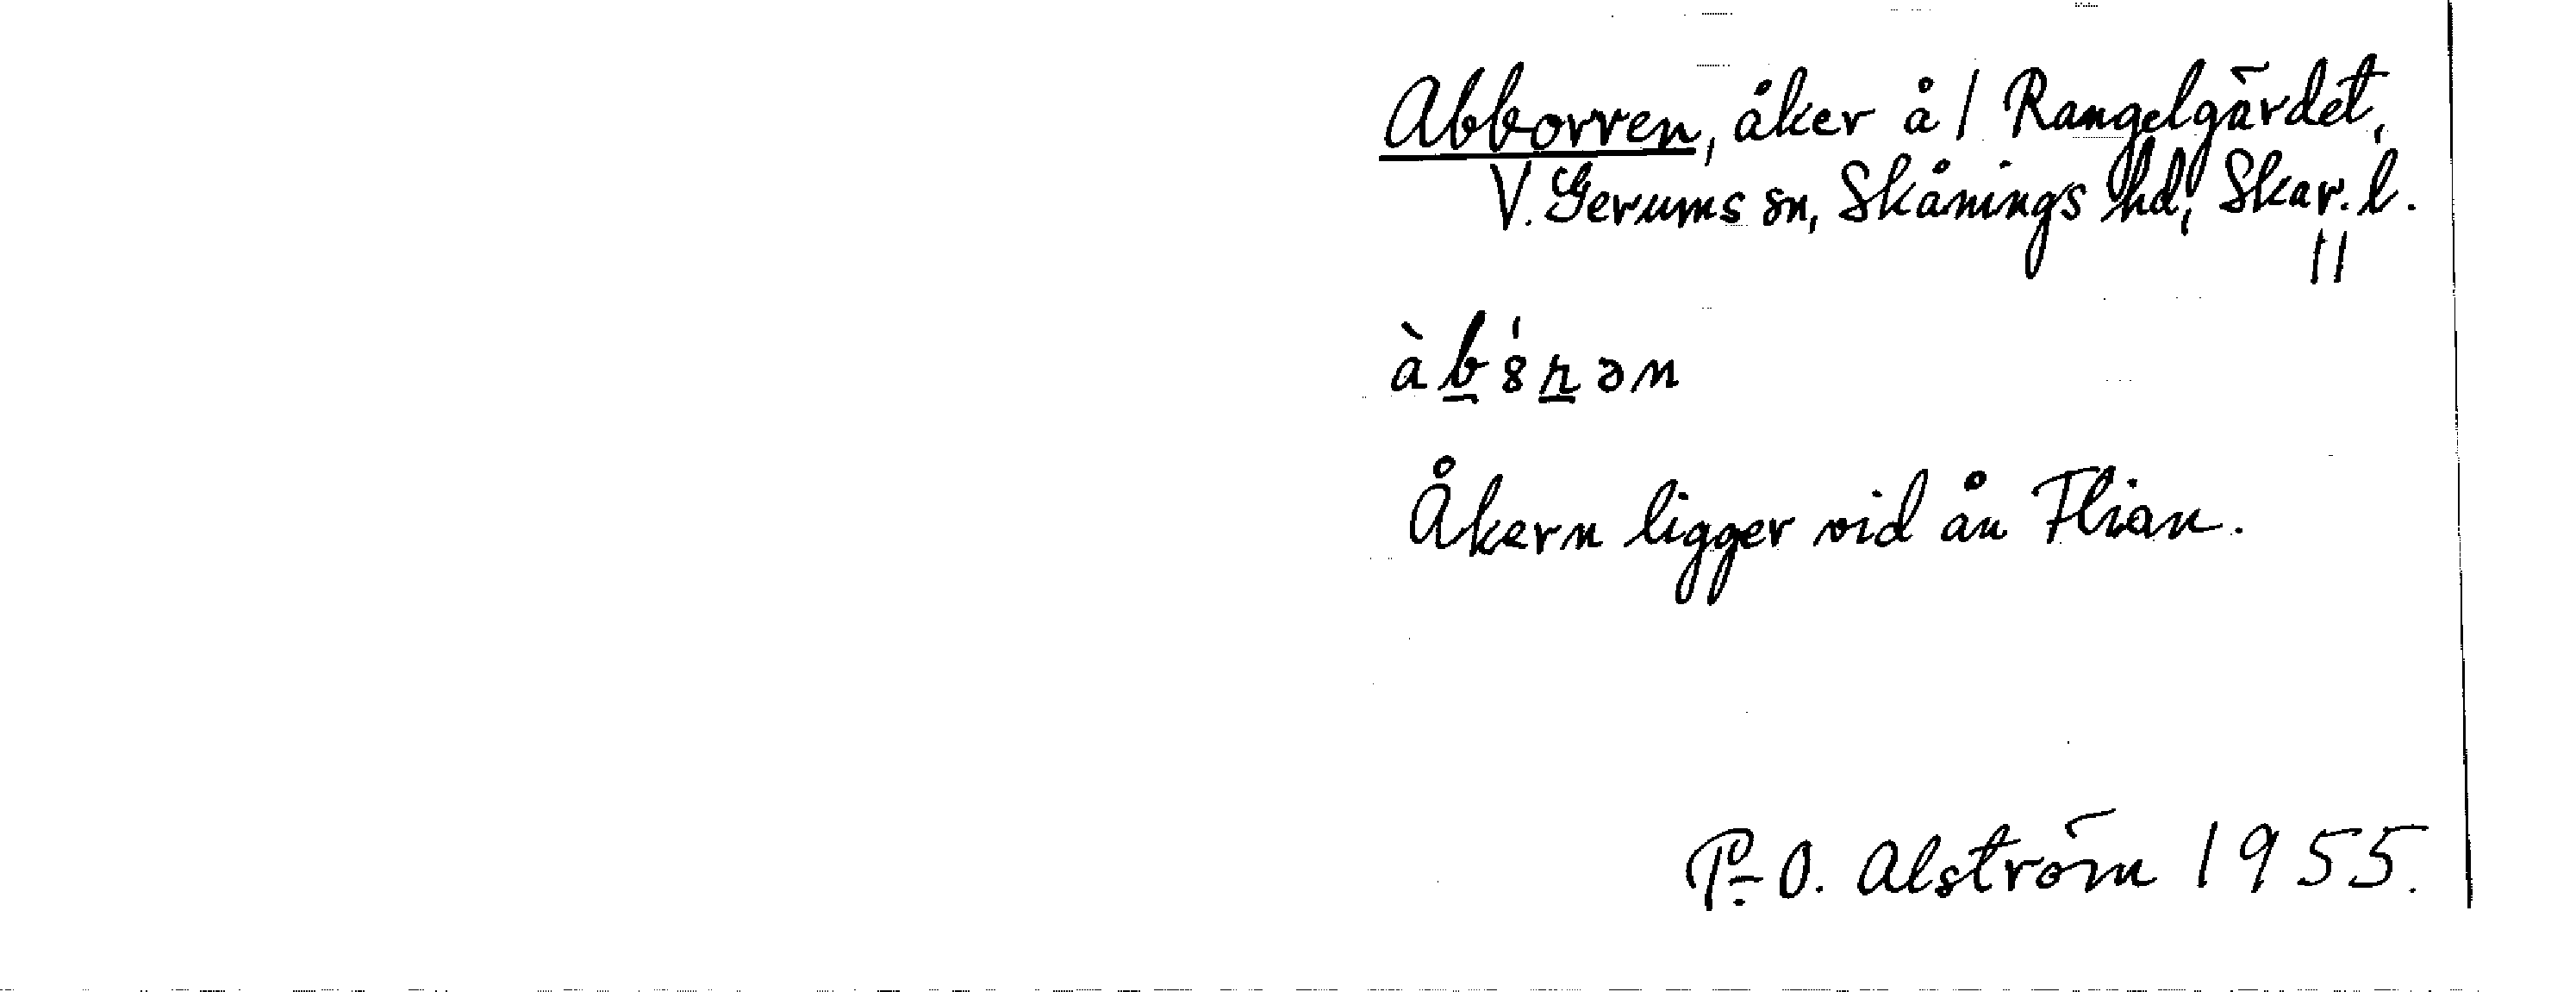 Abborren, åker å / Rangelgärdet,
V. Gerums sn, Skånings hd, Skar. l.
11
àb8́rən
Åkern ligger vid ån Flian.
P.-O. Alström 1955.